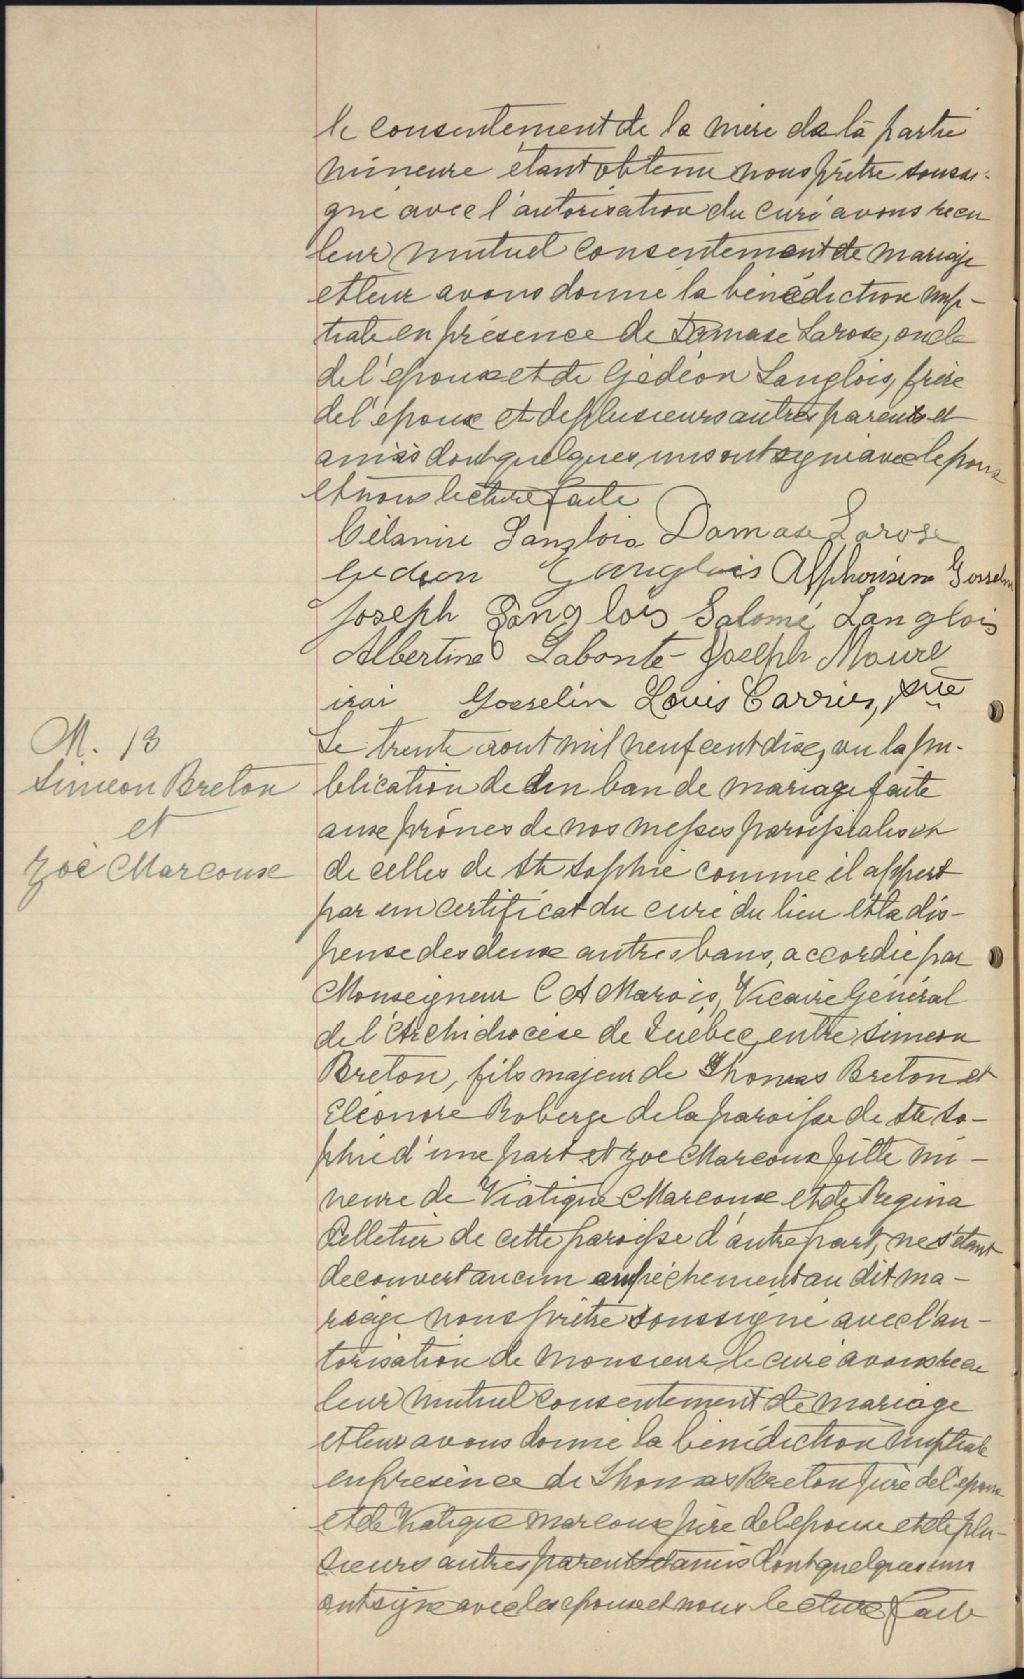 le consentement de la mère de la partie
mineure étant obtenu nous prêtre soussi-
gné avec l'autorisation du curé avons reçu
leur mutuel consentement de mariage
et leur avons donné la bénédiction nup-
tiale en présence de Damase Larose, oncle
de l'epoux et de Gédéon Langlois, frère
de l'époux et de plusieurs autres parents et
amis dont quelques uns ont signé avec l'epoux
et nous lecture faite
Célanire Langlois Damase Larose
Gedeon Langlois Alphonsine Gosselin
Joseph Langlois Salomé Langlois
Albertine Labonté Joseph
Gosselin Louis Carrier, ptre
M. 13
Simeon Breton
et
Zoé Marcoux
Le trente aout mil neuf cent dix, vu la pu-
blication de d'un ban de mariage faite
aux prônes de nos messes paroissiales et
de celles de Ste Sophie comme il appert
par un certificat du curé du lieu et la dis-
pense des deux autres bans, accordée par
Monseigneur C A Marois, Vicaire Général
de l'Archidiocèse de Québec, entre Simeon
Breton, fils majeur de Thomas Breton et
Eléonore Roberge de la paroisse de Ste So-
phie d'une part et Zoé Marcoux fille mi-
neure de Viatique Marcoux et de Regina
Pelletier de cette paroisse d'autre part, ne s'étant
decouvert aucun empêchement au dit ma-
riage nous prêtre soussigné avec l'au-
torisation de monsieur le curé avons recu
leur mutuel consentement de mariage
et leur avons donné la bénédiction nuptiale
en presence de Thomas Breton père de l'epoux
et de Viatique Marcoux père de l'epouse et de plu-
sieurs autres parents et amis dont quelques uns
ont signé avec les epoux et nous lecture faite